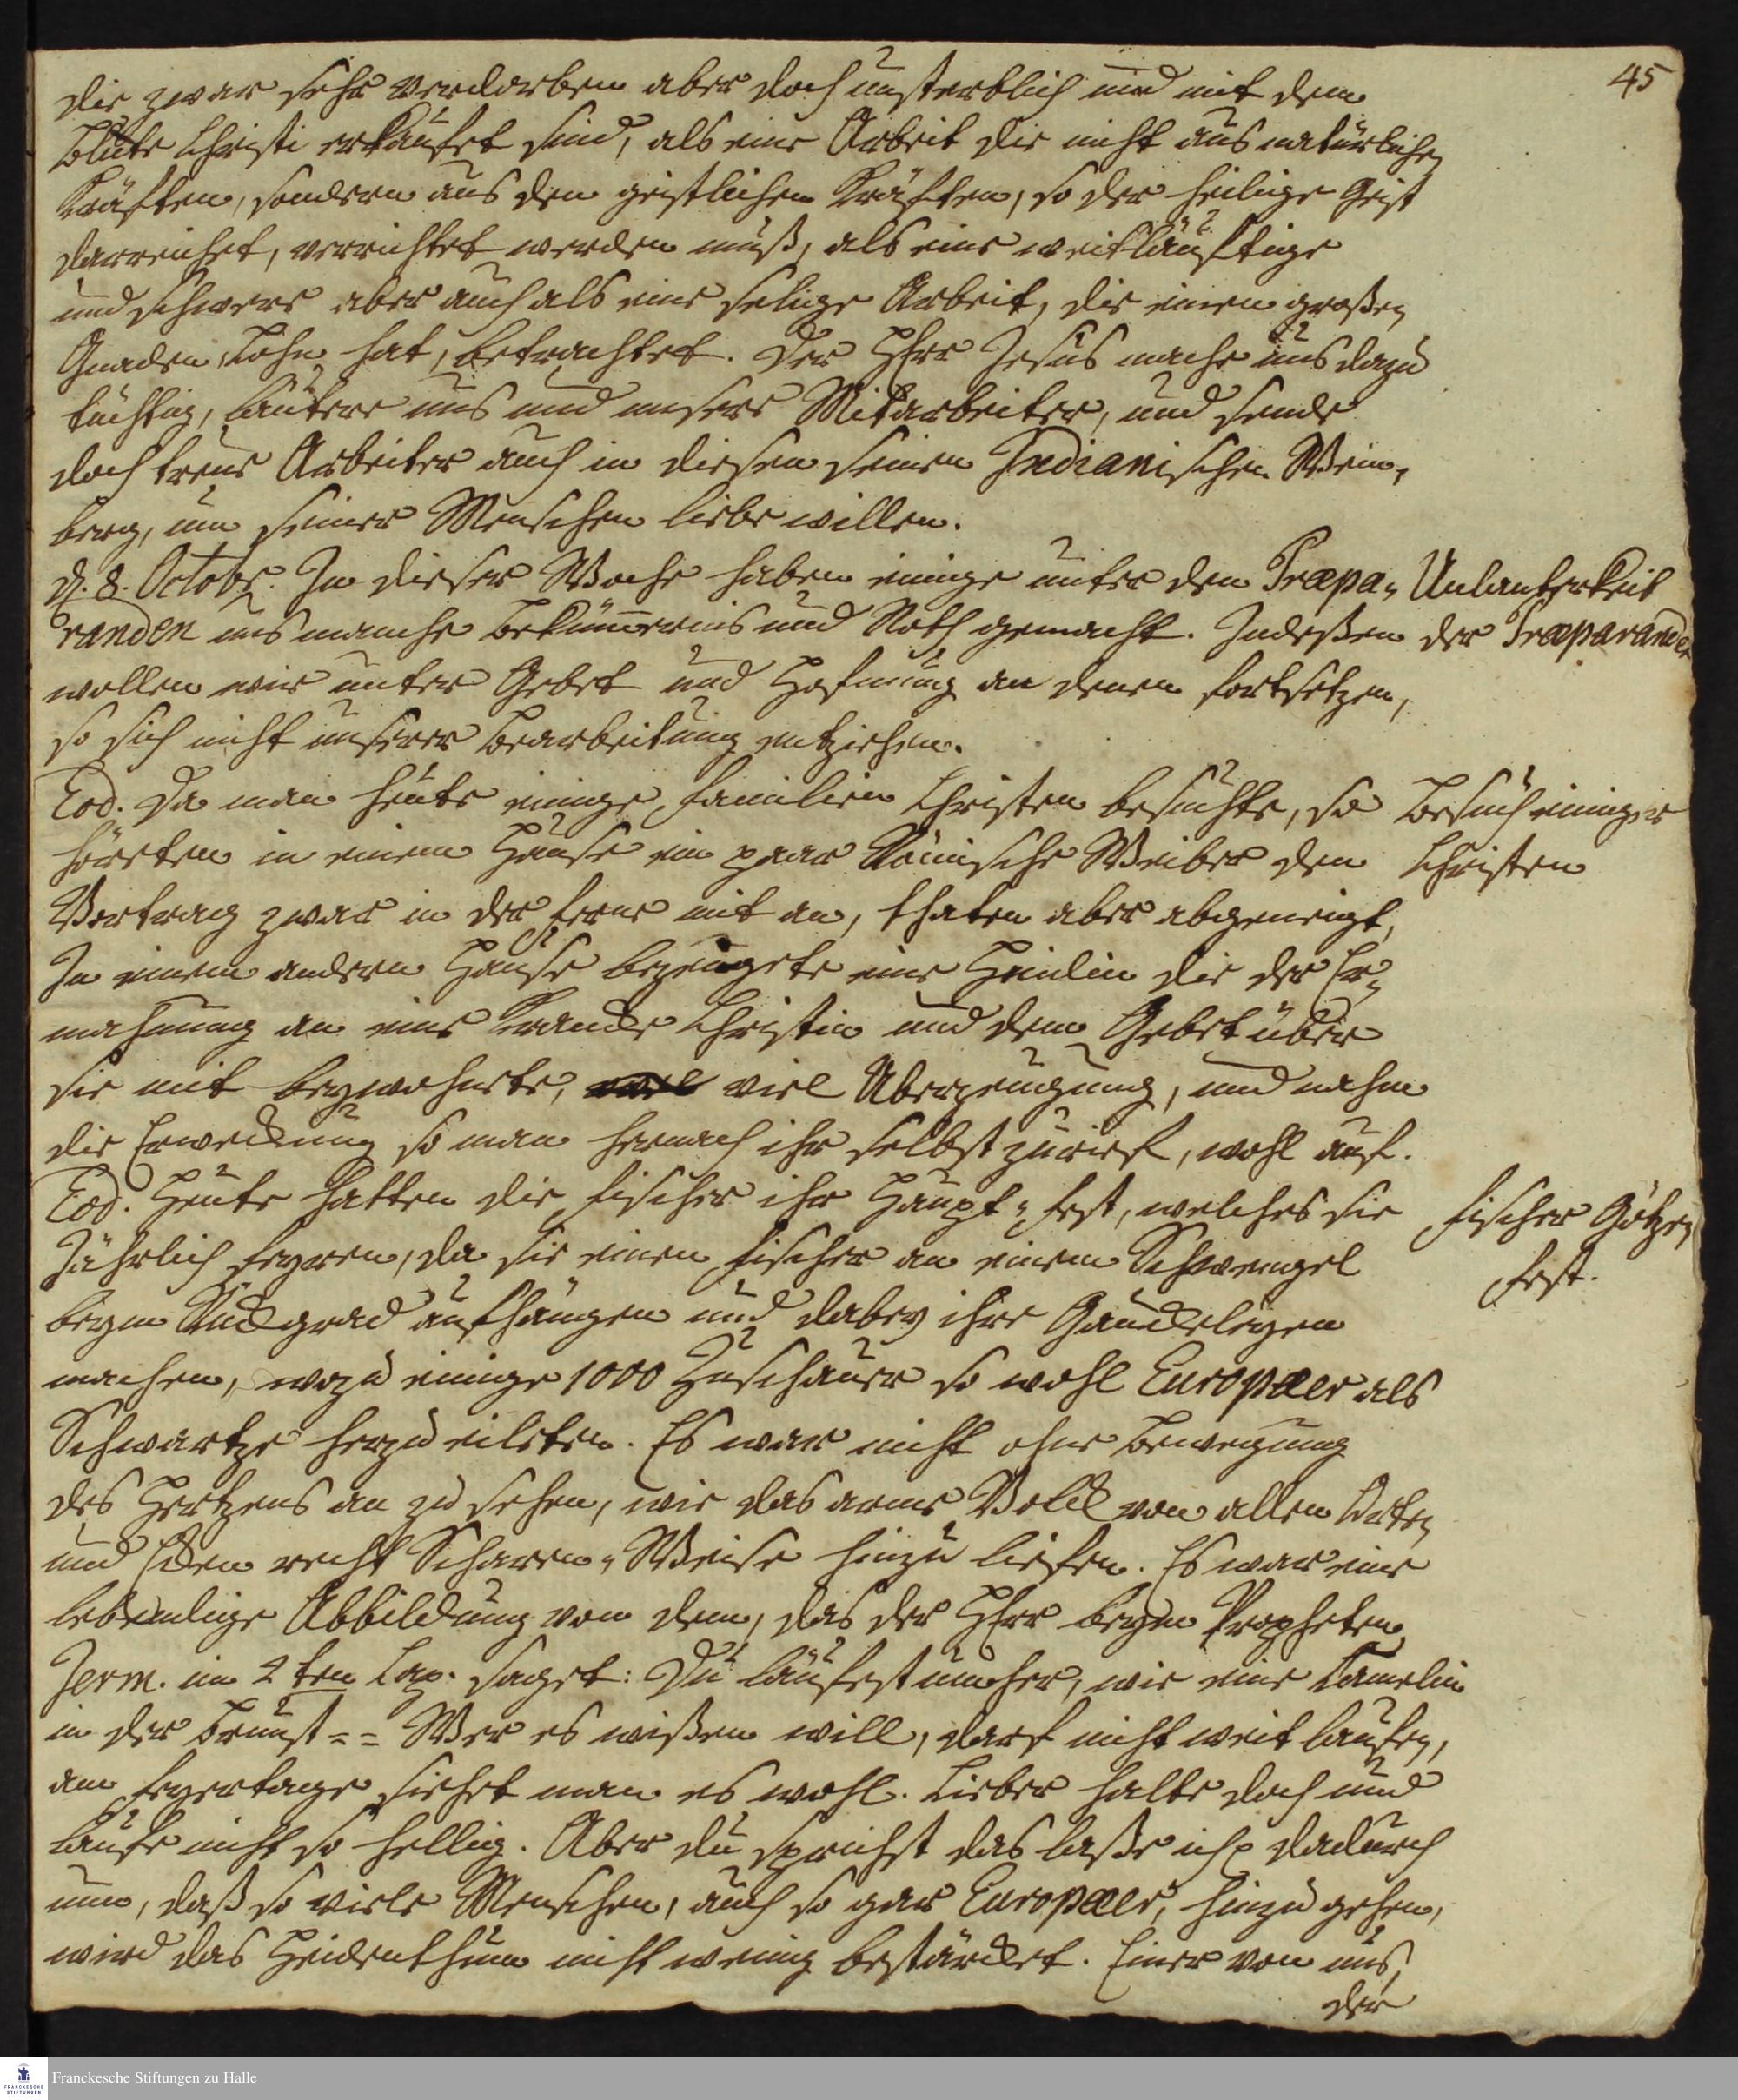 45
die zwar sehr verdorben aber doch unsterblich und mit dem
Blute Christi erkaufet sind, als eine Arbeit die nicht aus natürlichen
Kräften, sondern aus den geistlichen Kräften, so der heilige Geist
darreichet, verrichtet werden muß, als eine weitläuftige
und schwere aber auch als eine selige Arbeit, die einen großen
Gnaden Lohn hat, betrachtet. Der HErr Jesus mache uns dazu
tüchtig, läutere uns und unsere Mitarbeiter, und sende
doch treue Arbeiter auch in diesen seinen Indianischen Wein„
berg, um seiner Menschen liebe willen.
d. 8. Octobr. In dieser Woche haben einige unter den Præpa„
randen uns manche Bekümmernis und Noth gemacht. Indeßen
wollen wir unter Gebet und Hofnung an denen fortsetzen,
so sich nicht unserer Bearbeitung entziehen.
Unlauterkeit
der Præparanden
Eod. Da man heute einige Familien Christen besuchte, so
höreten in einem Hause ein paar Römische Weiber den
Vortrag zwar in der ferne mit an, thaten aber abgeneigt,
In einem andern Hause bezeugete eine Heidin die der Er„
mahnung an eine krancke Christin und dem Gebet über
sie mit beywohnete, viel Überzeugung, und nahm
die Erweckung so man hernach ihr selbst zurief, wohl auf.
Besuch einiger
Christen
Eod. Heute hatten die Fischer ihr Haupt„fest, welches sie
Jährlich feyren, da sie einen Fischer an einem Schwengel
beym Rückgrad aufhängen und dabey ihre Gauckeleyen
machen, wozu einige 1000 Zuschauer so wohl Europæer als
Schwartze herzu eileten. Es war nicht ohne Bewegung
des Hertzens an zu sehen, wie das arme Volck von allen Orten
und Ecken recht Scharen„Weise hinzu liefen. Es war eine
lebendige Abbildung von dem, das der HErr beym Propheten
Jerm. im 2ten Cap. saget: Du läufest umher, wie eine Camelin
in der Brunst == Wer es wißen will, darf nicht weit laufen,
am feyertage siehet man es wohl. Lieber halte doch und
laufe nicht so hellig. Aber du sprichst das laße ich. Dadurch
nun, daß so viele Menschen, auch so gar Europæer, hinzu gehen,
wird das Heidenthum nicht wenig bestärcket. Einer von uns,
der
Fischer Götzen
fest.
Franckesche Stiftungen zu Halle
FRANCKESCHE
STIFTUNGEN